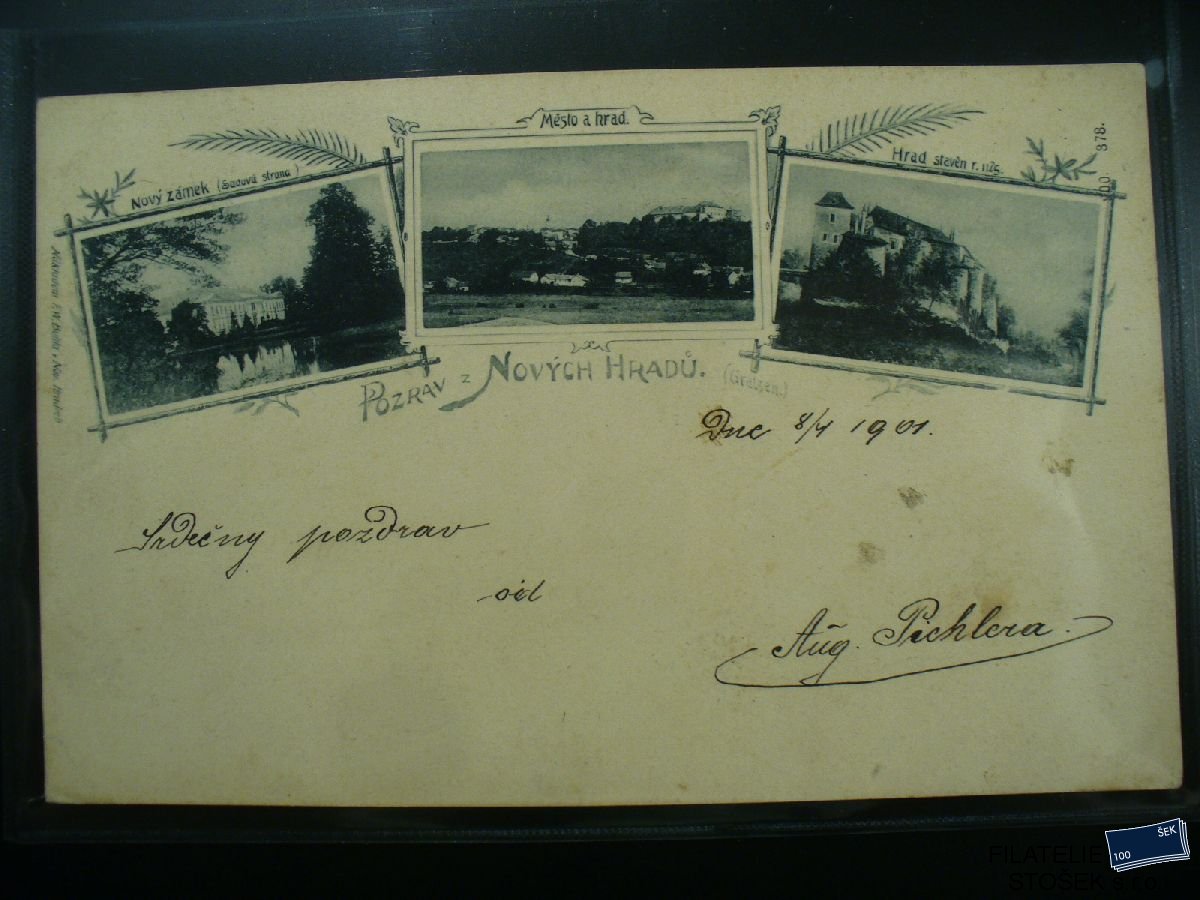 Město a hrad.
Nový zámek (Sadová strana)
Hrad stavěn r. 1179.
378.
Pozrav z Nových Hradů.
(Gratzen.)
Dne 8/4 1901.
Srdečný pozdrav
od
Aug. Pichlera.
ŠEK
100
FILATELIE
STOŠEK s.r.o.